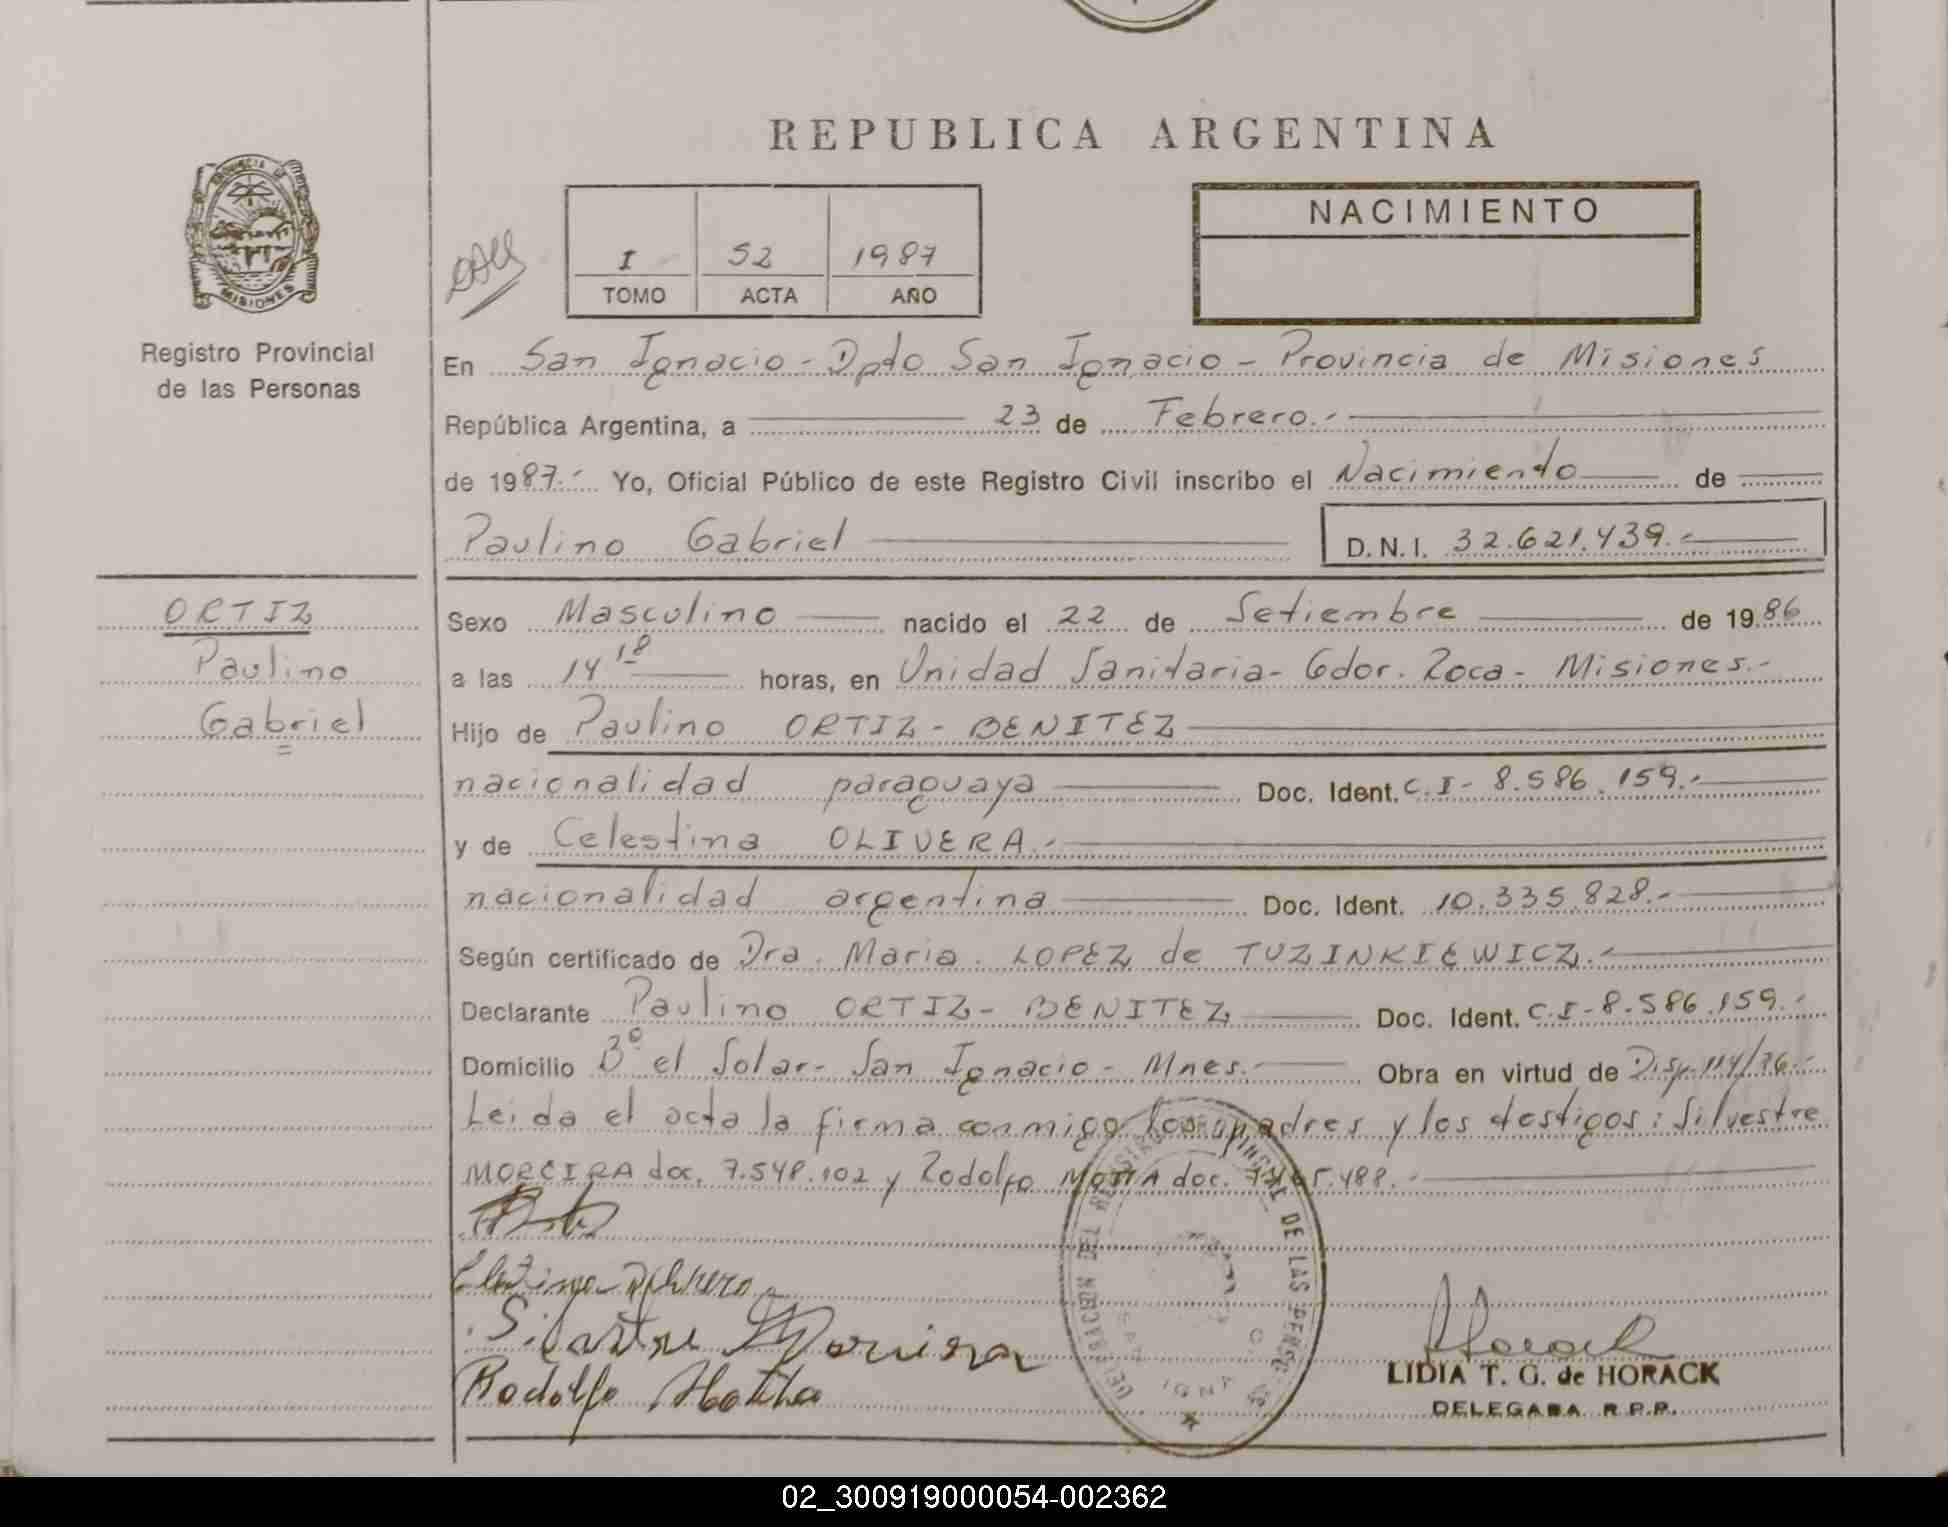 REPUBLICA ARGENTINA
PROVINCIA DE
MISIONES
Registro Provincial
de las Personas
I 52 1987
TOMO ACTA AÑO
NACIMIENTO
En San Ignacio - Dpto San Ignacio - Provincia de Misiones
República Argentina, a 23 de Febrero.-
de 1987.- Yo, Oficial Público de este Registro Civil inscribo el Nacimiento de
Paulino Gabriel D.N.I. 32.621.439.-
ORTIZ
Paulino
Gabriel
Sexo Masculino nacido el 22 de Setiembre de 1986
a las 14 18 horas, en Unidad Sanitaria - Gdor. Roca - Misiones.-
Hijo de Paulino ORTIZ - BENITEZ
nacionalidad paraguaya Doc. Ident. C.I - 8.586.159.-
y de Celestina OLIVERA.-
nacionalidad argentina Doc. Ident. 10.335.828.-
Según certificado de Dra. Maria. LOPEZ de TUZINKIEWICZ.-
Declarante Paulino ORTIZ - BENITEZ Doc. Ident. C.I - 8.586.159.-
Domicilio Bº el Solar - San Ignacio - Mnes.- Obra en virtud de Disp. 114/76.-
Leida el acta la firma conmigo los padres y los testigos: Silvestre
MOREIRA doc. 7.548.102 y Rodolfo MOTTA doc.
DE LAS PERSO
Silvestre Moreira
Rodolfo Motta
Horack
LIDIA T. G. de HORACK
DELEGADA R.P.P.
02_300919000054-002362